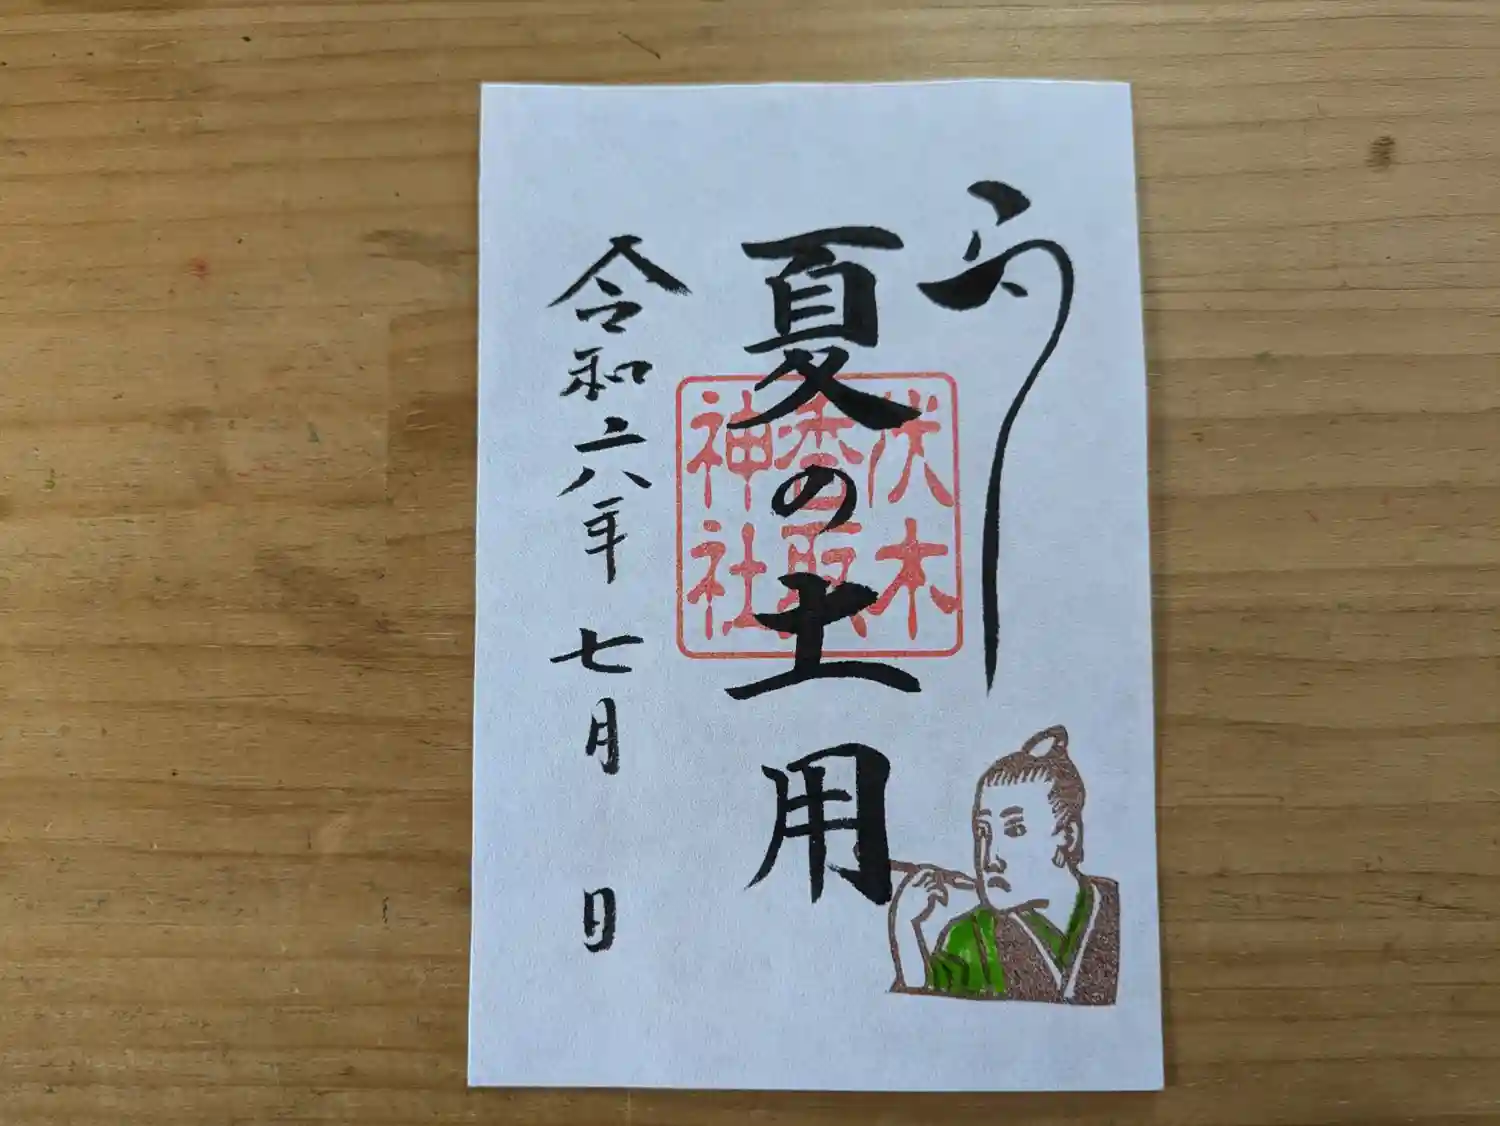 う
夏の土用
伏木
香取
神社
令和六年 七月 日